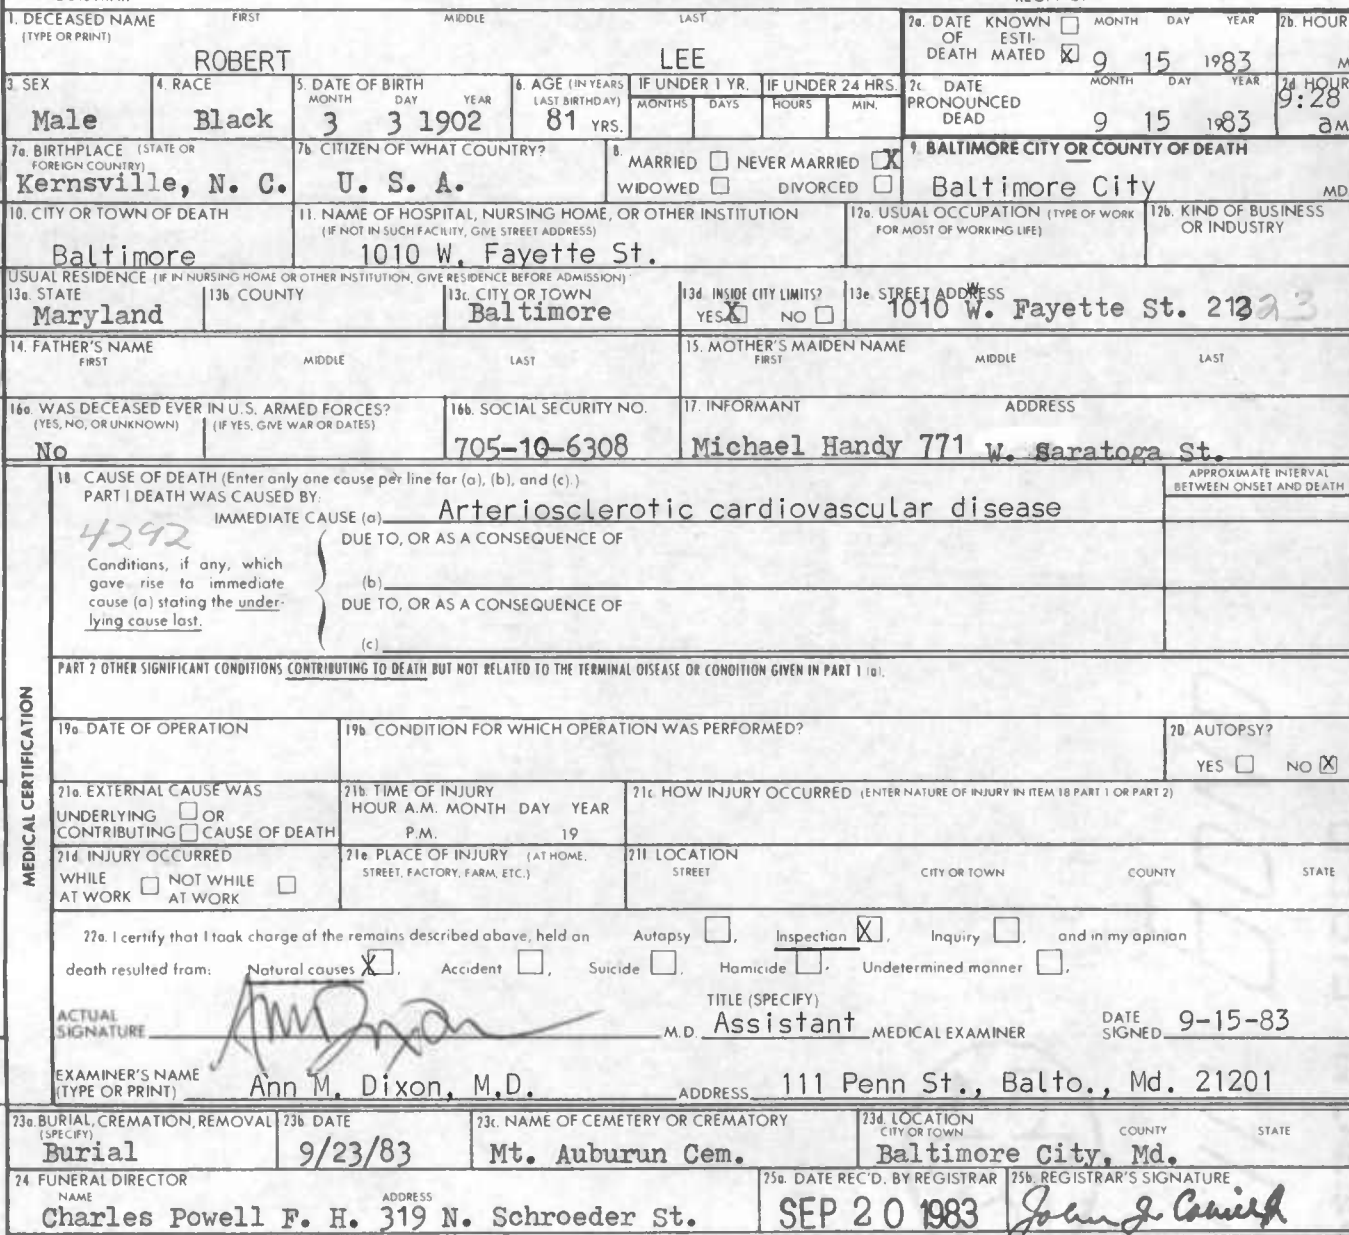 1. DECEASED NAME FIRST MIDDLE LAST
(TYPE OR PRINT)
ROBERT LEE
2a. DATE KNOWN MONTH DAY YEAR
OF ESTI-
DEATH MATED X 9 15 1983
2b. HOUR
M
3. SEX
Male
4. RACE
Black
5. DATE OF BIRTH
MONTH DAY YEAR
3 3 1902
6. AGE (IN YEARS
LAST BIRTHDAY)
81 YRS.
IF UNDER 1 YR.
MONTHS DAYS
IF UNDER 24 HRS.
HOURS MIN.
2c. DATE MONTH DAY YEAR
PRONOUNCED
DEAD 9 15 1983
2d HOUR
9:28
aM
7a. BIRTHPLACE (STATE OR
FOREIGN COUNTRY)
Kernsville, N. C.
7b. CITIZEN OF WHAT COUNTRY?
U. S. A.
8.
MARRIED NEVER MARRIED X
WIDOWED DIVORCED
9. BALTIMORE CITY OR COUNTY OF DEATH
Baltimore City MD
10. CITY OR TOWN OF DEATH
Baltimore
11. NAME OF HOSPITAL, NURSING HOME, OR OTHER INSTITUTION
(IF NOT IN SUCH FACILITY, GIVE STREET ADDRESS)
1010 W. Fayette St.
12a. USUAL OCCUPATION (TYPE OF WORK
FOR MOST OF WORKING LIFE)
12b. KIND OF BUSINESS
OR INDUSTRY
USUAL RESIDENCE (IF IN NURSING HOME OR OTHER INSTITUTION, GIVE RESIDENCE BEFORE ADMISSION)
13a. STATE
Maryland
13b COUNTY
13c. CITY OR TOWN
Baltimore
13d. INSIDE CITY LIMITS?
YES X NO
13e. STREET ADDRESS
1010 W. Fayette St. 21223
14. FATHER'S NAME
FIRST MIDDLE LAST
15. MOTHER'S MAIDEN NAME
FIRST MIDDLE LAST
16a. WAS DECEASED EVER IN U.S. ARMED FORCES?
(YES, NO, OR UNKNOWN) (IF YES, GIVE WAR OR DATES)
No
16b. SOCIAL SECURITY NO.
705-10-6308
17. INFORMANT ADDRESS
Michael Handy 771 W. Saratoga St.
MEDICAL CERTIFICATION
18 CAUSE OF DEATH (Enter only one cause per line for (a), (b), and (c).)
PART I DEATH WAS CAUSED BY:
APPROXIMATE INTERVAL
BETWEEN ONSET AND DEATH
IMMEDIATE CAUSE (a) Arteriosclerotic cardiovascular disease
4292
DUE TO, OR AS A CONSEQUENCE OF
Conditions, if any, which
gave rise to immediate
cause (a) stating the under-
lying cause last.
(b)
DUE TO, OR AS A CONSEQUENCE OF
(c)
PART 2 OTHER SIGNIFICANT CONDITIONS CONTRIBUTING TO DEATH BUT NOT RELATED TO THE TERMINAL DISEASE OR CONDITION GIVEN IN PART 1 (a).
19a. DATE OF OPERATION
19b. CONDITION FOR WHICH OPERATION WAS PERFORMED?
20 AUTOPSY?
YES NO X
21a. EXTERNAL CAUSE WAS
UNDERLYING OR
CONTRIBUTING CAUSE OF DEATH
21b. TIME OF INJURY
HOUR A.M. MONTH DAY YEAR
P.M. 19
21c. HOW INJURY OCCURRED (ENTER NATURE OF INJURY IN ITEM 18 PART 1 OR PART 2)
21d INJURY OCCURRED
WHILE NOT WHILE
AT WORK AT WORK
21e PLACE OF INJURY (AT HOME,
STREET, FACTORY, FARM, ETC.)
21f. LOCATION
STREET CITY OR TOWN COUNTY STATE
22a. I certify that I took charge of the remains described above, held an Autopsy , Inspection X , Inquiry , and in my opinion
death resulted from: Natural causes X , Accident , Suicide , Homicide , Undetermined manner ,
ACTUAL
SIGNATURE Ann Dixon M.D.
TITLE (SPECIFY)
Assistant MEDICAL EXAMINER
DATE
SIGNED 9-15-83
EXAMINER'S NAME
(TYPE OR PRINT) Ann M. Dixon, M.D. ADDRESS 111 Penn St., Balto., Md. 21201
23a. BURIAL, CREMATION, REMOVAL
(SPECIFY)
Burial
23b. DATE
9/23/83
23c. NAME OF CEMETERY OR CREMATORY
Mt. Auburun Cem.
23d. LOCATION
CITY OR TOWN COUNTY STATE
Baltimore City, Md.
24. FUNERAL DIRECTOR
NAME ADDRESS
Charles Powell F. H. 319 N. Schroeder St.
25a. DATE REC'D. BY REGISTRAR
SEP 20 1983
25b. REGISTRAR'S SIGNATURE
John J.